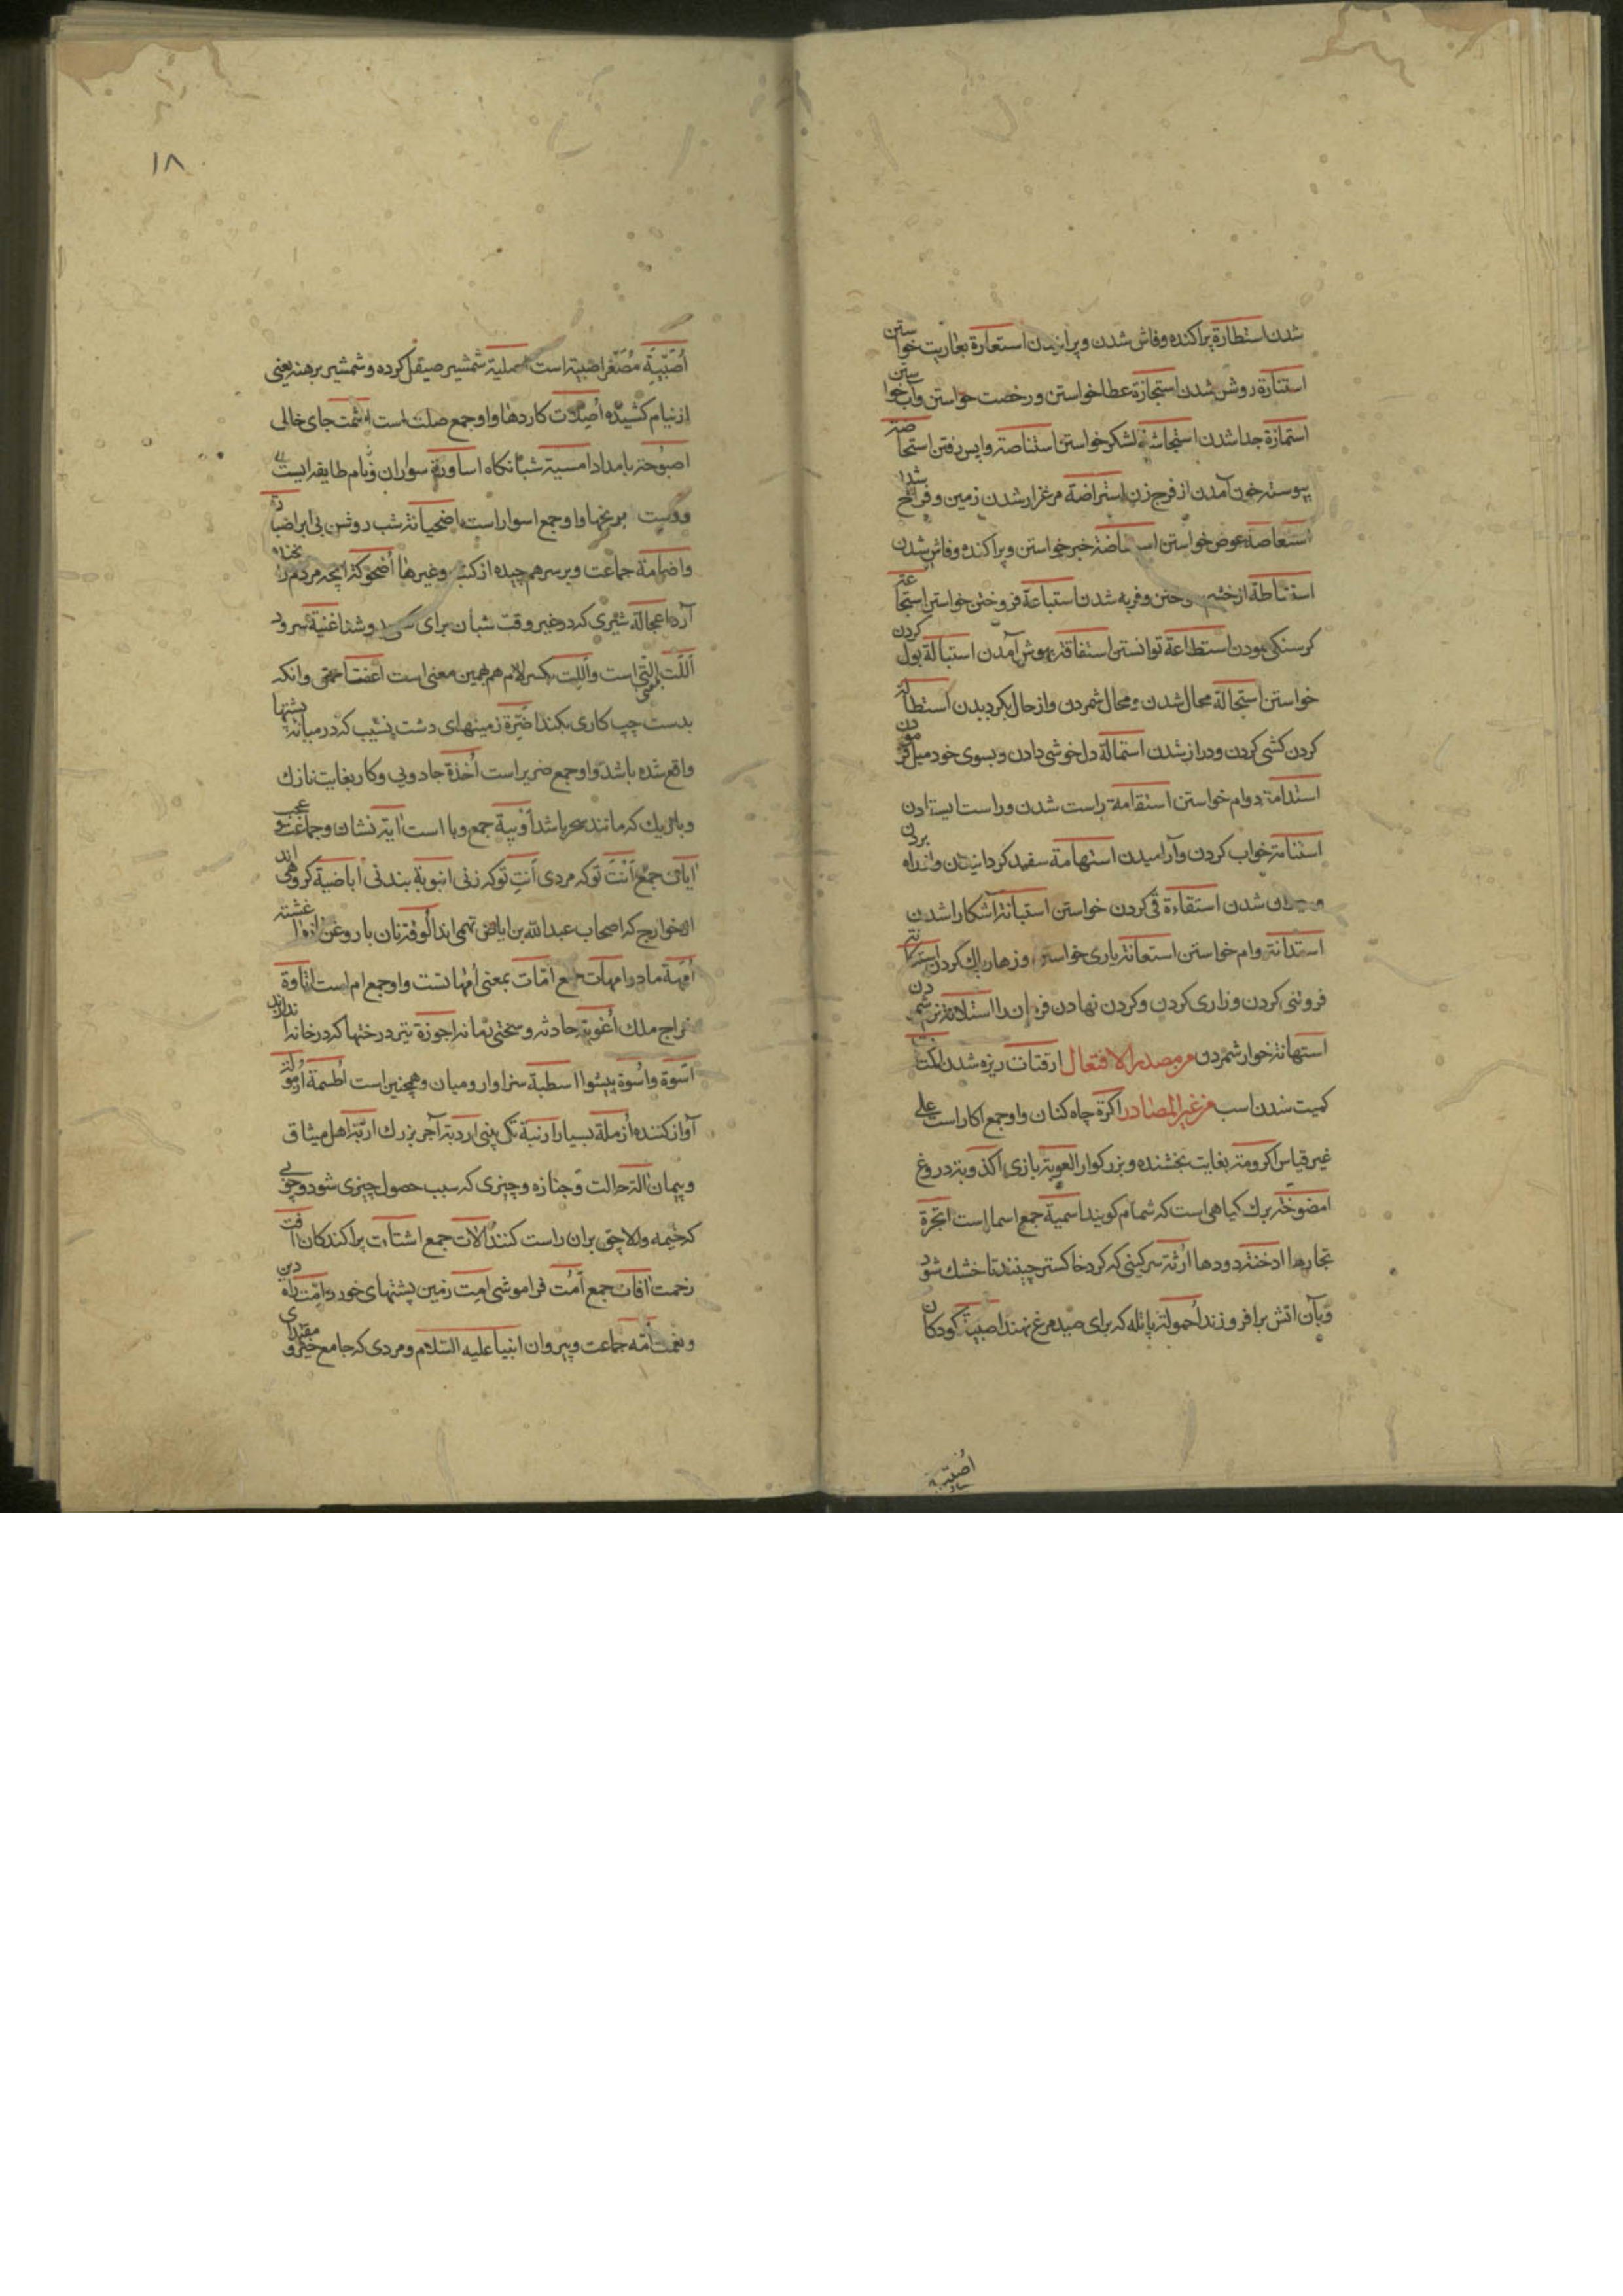 شدن استطارة پراکنده و فاش شدن و پرانیدن استعارة بعاریت خواستن
استنارة روشن شدن استجازة عطا خواستن و رخصت خواستن و آب خواستن
استمازة جدا شدن استجاشة لشکر خواستن استناصة واپس رفتن استحاضة
پیوسته خون آمدن از فرج زن استراضة مرغزار شدن زمین و فراخ شدن
استعاضة عوض خواستن خبر خواستن و پراکنده و فاش شدن
استشاطة از خشم و فربه شدن استباعة فروختن خواستن استجاعة
کرسنکی نمودن استطاعة توانستن استفاقة بهوش آمدن استبالة بول کردن
خواستن استحالة محال شدن و محال شمردن و از حال بکردیدن استطالة
کردن کشی کردن و دراز شدن استمالة دل خوشی دادن و بسوی خود میل فرمودن
استدامة دوام خواستن استقامة راست شدن و راست ایستادن
استنامة خواب کردن و آرامیدن استهامة سفید کردانیدن و از راه بردن
شدن استقاءة قی کردن خواستن استبانة آشکارا شدن
استدانة وام خواستن استعانة یاری خواستن و زهار پاک کردن استکانة
فروتنی کردن و زاری کردن و کردن نهادن استلانة نرم شمردن
استهانة خوار شمردن من مصدر الافتعال ارفتات ریزه شدن اکمتات
کمیت شدن اسب من غیر المصادر اکرة چاه کنان و او جمع اکار است علی
غیر قیاس اکرومة بغایت بخشنده و بزرکوار العوبة بازی اکذوبة دروغ
امضوخة برک کیاهی است که شمام کویند اسمیة جمع اسما است ابخرة
بخارها ادخنة دودها ارثة سرکینی که کرد خاکستر چینند تا خشک شود
و بآن اتش برافروزند احمولة پاتله که برای صید مرغ نهند اصبیة کودکان
اُصَیبیة
۱۸
اُصَیبیة مصغر اصبیة است اصلیة شمشیر صیقل کرده و شمشیر برهنه یعنی
از نیام کشیده اصلات کاردها و او جمع صلت است اصمت جای خالی
اصبوحة بامداد امسیة شبانکاه اساورة سواران و نام طایفه ایست
و دست برنجها و او جمع اسوار است اضحیانة شب روشن بی ابر اضبارة
و اضمامة جماعت و بر سر هم چیده از کتب و غیرها اضحوکة انچه مردم را بخنده
آرد اعجالة شیری که در غیر وقت شبان برای دوشد اغنیة سرود
اللت بمعنی التی است و اللت بکسر لام هم بهمین معنی است اعفت احمق و انکه
بدست چپ کاری بکند اضرة زمینهای دشت نشیب که در میانه پشتها
واقع شده باشد و او جمع ضریر است اخذة جادویی و کار بغایت نازک
و باریک که مانند سحر باشد اوبیة جمع وبا است آیة نشان و جماعت و عجب
آیات جمع اَنْتَ تو که مردی اَنْتِ تو که زنی انبوبة بند نی اباضیة کروهی اند
از خوارج که اصحاب عبد الله بن اباض تمیمی اند الوقة نان با روغن آغشته
امهة مادر امهات جمع امات بمعنی امهاتست و او جمع ام است اتاوة
خراج ملک اغویة حادثه و سختی زمانه اجوزة تیر درختها که در خانه اندازند
اسوة و اُسوة پیشوا اسطبة سزاوار و میان و همچنین است اطسمة ازمولة
آواز کننده ازملة بسیار ارنبة تک بینی اردبة آجر بزرک اربّة اهل میثاق
و پیمان آلة حالت و جنازه و چیزی که سبب حصول چیزی شود و چوبی
که خیمه و الاچق بران راست کنند آلات جمع اشتات پراکندکان آفت
زحمت آفات جمع اَمْت فراموشی امت زمین پشتهای خورد اِمّت راه دین
و نعمت امّة جماعت و پیروان انبیا علیه السلام و مردی که جامع خیر و مقتدای